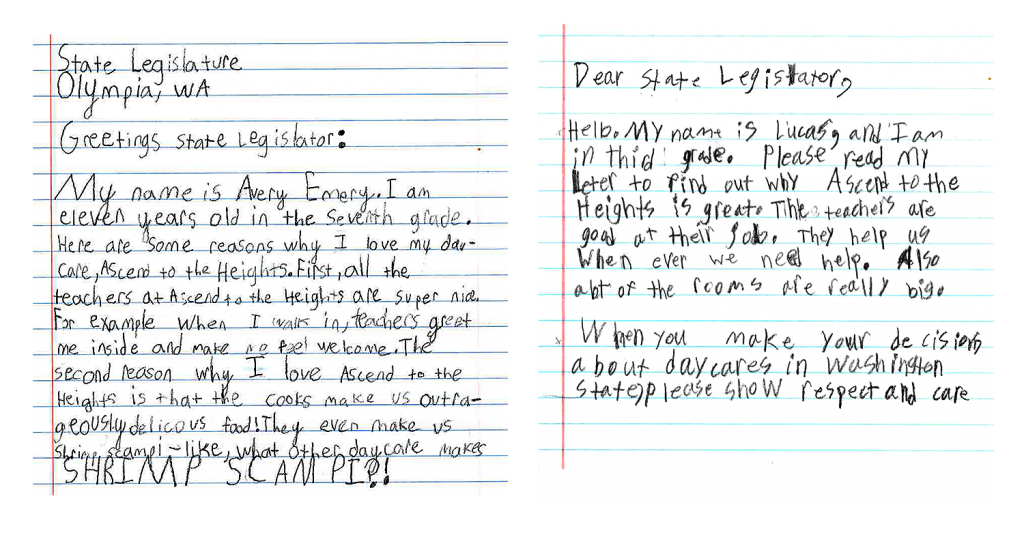 State Legislature
Olympia, WA
Greetings state legislator:
My name is Avery Emery. I am
eleven years old in the Seventh grade.
Here are some reasons why I love my day-
care, Ascend to the Heights. First, all the
teachers at Ascend to the Heights are super nice.
For example when I walk in, teachers greet
me inside and make me feel welcome. The
second reason why I love Ascend to the
Heights is that the cooks make us outra-
geously delicous food! They even make us
Shrimp scampi-like, what other daycare makes
SHRIMP SCAMPI?!
Dear State Legislator,
Hello. My name is Lucas, and I am
in thid grade. Please read my
leter to find out why Ascend to the
Heights is great. The teachers are
good at their Job. They help us
when ever we need help. Also
alot of the rooms are really big.
When you make your decisions
about daycares in Washington
State, please show respect and care